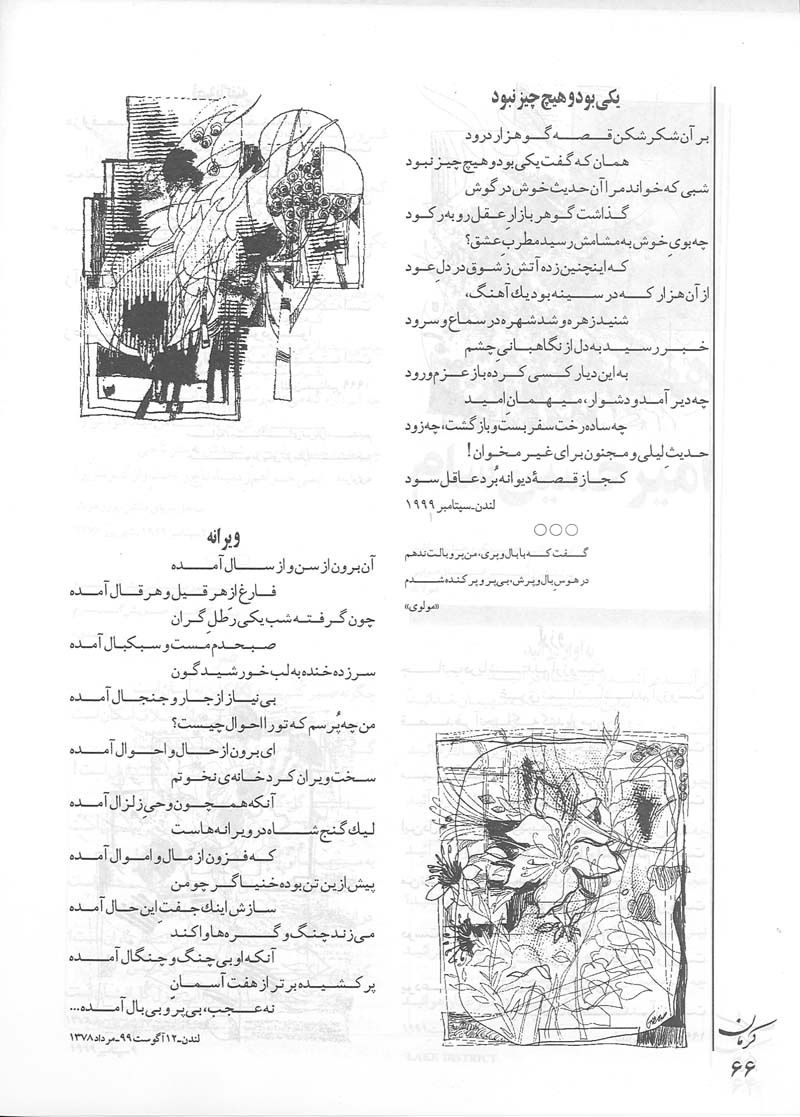 یکی بود و هیچ چیز نبود
بر آن شکر شکن قصه گو هزار درود
همان که گفت یکی بود و هیچ چیز نبود
شبی که خواند مرا آن حدیث خوش در گوش
گذاشت گوهر بازارِ عقل رو به رکود
چه بویِ خوش به مشامش رسید مطربِ عشق؟
که اینچنین زده آتش ز شوق در دلِ عود
از آن هزار که در سینه بود یك آهنگ،
شنید زهره و شد شهره در سماع و سرود
خبر رسید به دل از نگاهبانیِ چشم
به این دیار کسی کرده باز عزم ورود
چه دیر آمد و دشوار، میهمانِ امید
چه ساده رخت سفر بست و بازگشت، چه زود
حدیثِ لیلی و مجنون برای غیر مخوان!
کجا ز قصهٔ دیوانه بُرد عاقل سود
لندن ـ سپتامبر ۱۹۹۹
○○○
گفت که با بال و پری، من پر و بالت ندهم
در هوسِ بال و پرش، بی پر و پرکنده شدم
«مولوی»
ویرانه
آن برون از سن و از سال آمده
فارغ از هر قیل و هر قال آمده
چون گرفته شب یکی رَطلِ گران
صبحدم مست و سبکبال آمده
سر زده خنده به لب خورشید گون
بی نیاز از جار و جنجال آمده
من چه پُرسم که تو را احوال چیست؟
ای برون از حال و احوال آمده
سخت ویران کرد خانه‌ی نخوتم
آنکه همچون وحیِ زلزال آمده
لیك گنج شاه در ویرانه هاست
که فزون از مال و اموال آمده
پیش ازین تن بوده خنیاگر چو من
سازش اینك جفتِ این حال آمده
می زند چنگ و گره ها وا کند
آنکه او بی چنگ و چنگال آمده
پر کشیده برتر از هفت آسمانِ
نه عجب، بی پر و بی بال آمده...
لندن ـ ۱۲ آگوست ۹۹ ـ مرداد ۱۳۷۸
کرمان
۶۶